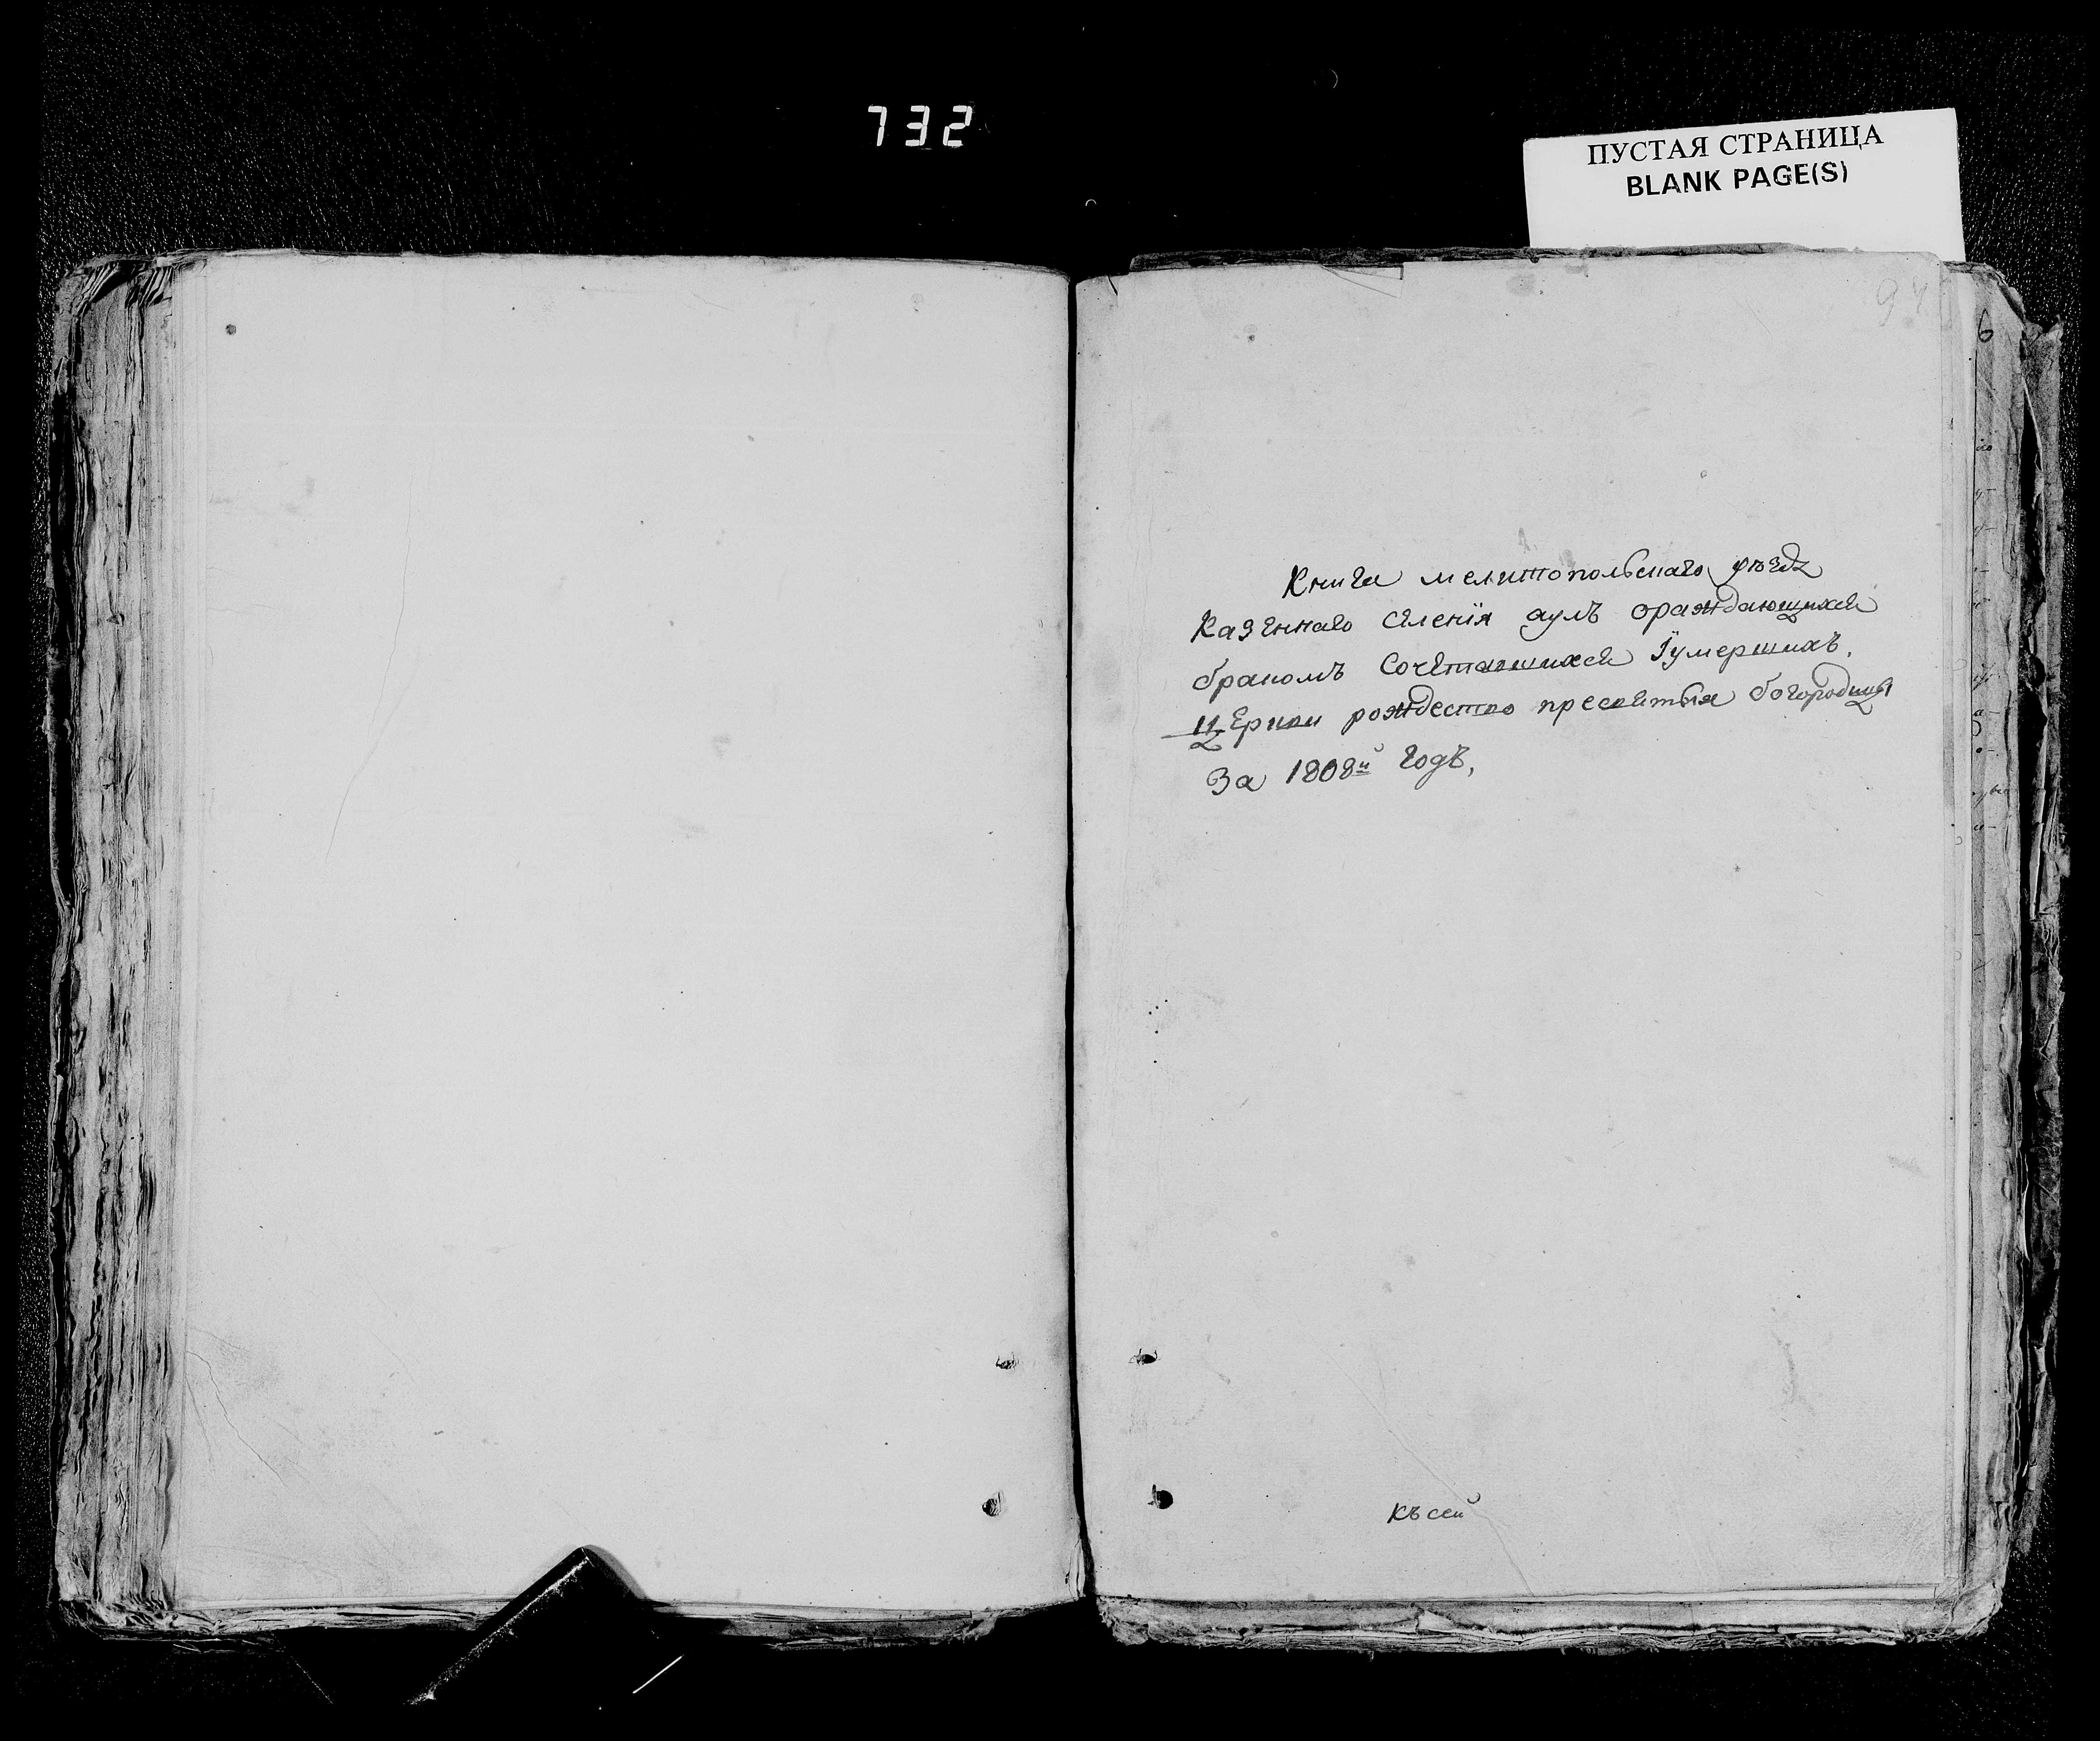 732
ПУСТАЯ СТРАНИЦА
BLANK PAGE(S)
6
Книга мелитопольскаго уѣзда
Казеннаго селенїя аулъ ораждающихся
бракомъ Сочетавшихся Їумершихъ,
Церкви рождество пресвятыя богородицы
За 1808й годъ,
Къ сей